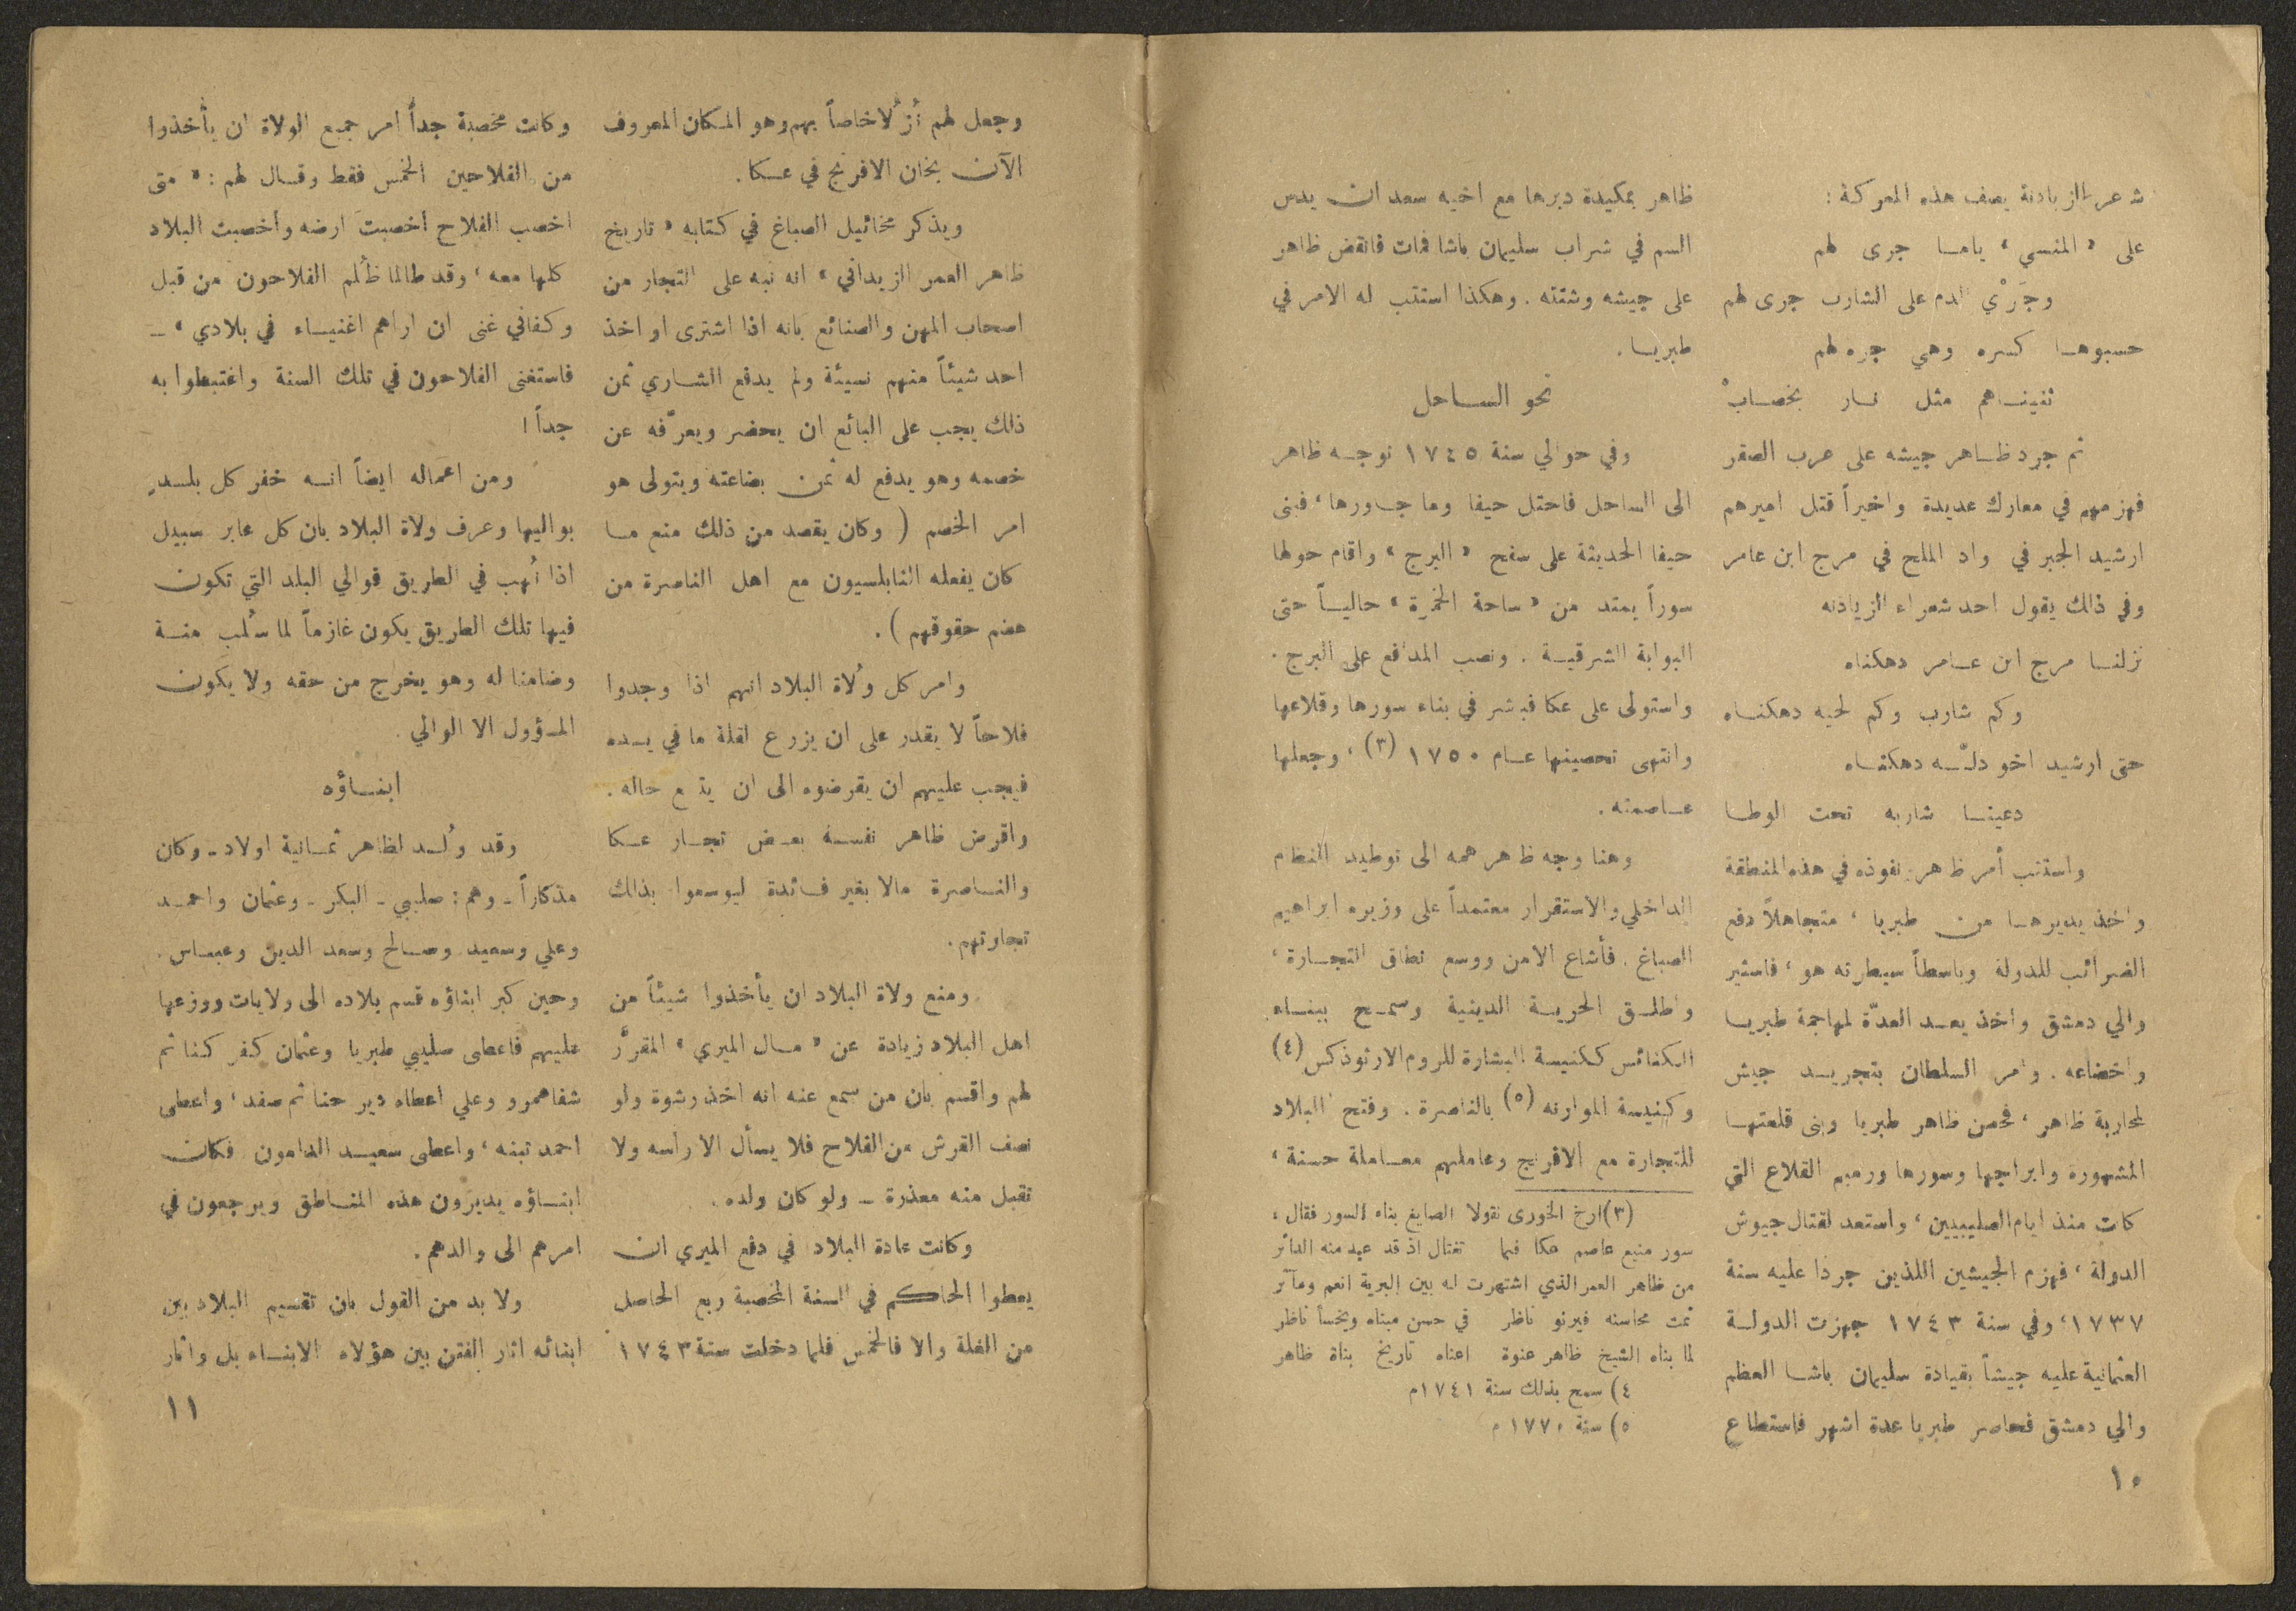 شعر الزيادنة يصف هذه المعركة :
على « المنسي » ياما جرى لهم
وجَرْي الدم على الشارب جرى لهم
حسبوها كسره وهي جره لهم
ثنيناهم مثل نار بخصابْ
ثم جرد ظاهر جيشه على عرب الصقر
فهزمهم في معارك عديدة واخيراً قتل اميرهم
ارشيد الجبر في واد الملح في مرج ابن عامر
وفي ذلك يقول احد شعراء الزيادنه
نزلنا مرج ابن عامر دهكناه
وكم شارب وكم لحيه دهكناه
حتى ارشيد اخو دلّه دهكناه
دعينا شاربه تحت الوطا
واستتب أمر ظاهر ونفوذه في هذه المنطقة
واخذ يديرها من طبريا ، متجاهلاً دفع
الضرائب للدولة وباسطاً سيطرته هو ، فاستثير
والي دمشق واخذ يعد العدّة لمهاجمة طبريا
واخضاعه . وامر السلطان بتجريد جيش
لمحاربة ظاهر ، فحصن ظاهر طبريا وبنى قلعتها
المشهورة وابراجها وسورها ورمم القلاع التي
كانت منذ ايام الصليبيين ، واستعد لقتال جيوش
الدولة ، فهزم الجيشين اللذين جردا عليه سنة
١٧٣٧ ، وفي سنة ١٧٤٣ جهزت الدولة
العثمانية عليه جيشاً بقيادة سليمان باشا العظم
والي دمشق فحاصر طبريا عدة اشهر فاستطاع
١٠
ظاهر بمكيدة دبرها مع اخيه سعد ان يدس
السم في شراب سليمان باشا فمات فانقض ظاهر
على جيشه وشتته . وهكذا استتب له الامر في
طبريا .
نحو الساحل
وفي حوالي سنة ١٧٤٥ توجه ظاهر
الى الساحل فاحتل حيفا وما جاورها ، فبنى
حيفا الحديثة على سفح « البرج » واقام حولها
سوراً يمتد من « ساحة الخمرة » حالياً حتى
البوابة الشرقية . ونصب المدافع على البرج .
واستولى على عكا فباشر في بناء سورها وقلاعها
وانتهى تحصينها عام ١٧٥٠ (٣) ، وجعلها
عاصمته .
وهنا وجه ظاهر همه الى توطيد النظام
الداخلي والاستقرار معتمداً على وزيره ابراهيم
الصباغ . فأشاع الامن ووسع نطاق التجارة ،
واطلق الحرية الدينية وسمح ببناء
الكنائس ككنيسة البشارة للروم الارثوذكس (٤)
وكنيسة الموارنه (٥) بالناصرة . وفتح البلاد
للتجارة مع الافرنج وعاملهم معاملة حسنة ،
(٣) ارخ الخوري نقولا الصايغ بناء السور فقال :
سور منيع عاصم عكا فما تغتال اذ قد عيد منه الداثر
من ظاهر العمر الذي اشتهرت له بين البرية انعم ومآثر
تمت محاسنه فيرنو ناظر في حسن مبناه ويخسأ ناظر
لما بناه الشيخ ظاهر عنوة اعناه تاريخ بناة ظاهر
٤) سمح بذلك سنة ١٧٤١م
٥) سنة ١٧٧٠ م
وجعل لهم نُزُلاً خاصاً بهم وهو المكان المعروف
الآن بخان الافرنج في عكا .
ويذكر مخائيل الصباغ في كتابه « تاريخ
ظاهر العمر الزيداني » انه نبه على التجار من
اصحاب المهن والصنائع بانه اذا اشترى او اخذ
احد شيئاً منهم نسيئة ولم يدفع الشاري ثمن
ذلك يجب على البائع ان يحضر ويعرّفه عن
خصمه وهو يدفع له ثمن بضاعته ويتولى هو
امر الخصم ( وكان يقصد من ذلك منع ما
كان يفعله النابلسيون مع اهل الناصرة من
هضم حقوقهم ) .
وامر كل وُلاة البلاد انهم اذا وجدوا
فلاحاً لا يقدر على ان يزرع لقلة ما في يده
فيجب عليهم ان يقرضوه الى ان يتسع حاله .
واقرض ظاهر نفسه بعض تجار عكا
والناصرة مالا بغير فائدة ليوسعوا بذلك
تجارتهم .
ومنع ولاة البلاد ان يأخذوا شيئاً من
اهل البلاد زيادة عن « مال الميري » المقرَّر
لهم واقسم بان من سمع عنه انه اخذ رشوة ولو
نصف القرش من الفلاح فلا يسأل الا رأسه ولا
تقبل منه معذرة – ولو كان ولده .
وكانت عادة البلاد في دفع الميري ان
يعطوا الحاكم في السنة المخصبة ربع الحاصل
من الغلة والا فالخمس فلما دخلت سنة ١٧٤٣
وكانت مخصبة جداً امر جميع الولاة ان يأخذوا
من الفلاحين الخمس فقط وقال لهم : « متى
اخصب الفلاح اخصبت ارضه وأخصبت البلاد
كلها معه ، وقد طالما ظُلم الفلاحون من قبل
وكفاني غنى ان اراهم اغنياء في بلادي » –
فاستغنى الفلاحون في تلك السنة واغتبطوا به
جداً !
ومن اعماله ايضاً انه خفر كل بلدٍ
بواليها وعرف ولاة البلاد بان كل عابر سبيل
اذا نُهب في الطريق فوالي البلد التي تكون
فيها تلك الطريق يكون غارماً لما سُلب منه
وضامنا له وهو يخرج من حقه ولا يكون
المسؤول الا الوالي .
ابناؤه
وقد وُلد لظاهر ثمانية اولاد – وكان
مذكاراً – وهم : صليبي – البكر – وعثمان واحمد
وعلي وسعيد وصالح وسعد الدين وعباس .
وحين كبر ابناؤه قسم بلاده الى ولايات ووزعها
عليهم فاعطى صليبي طبريا وعثمان كفر كنا ثم
شفاعمرو وعلي اعطاه دير حنا ثم صفد ، واعطى
احمد تبنه ، واعطى سعيد الدامون فكان
ابناؤه يديرون هذه المناطق ويرجعون في
امرهم الى والدهم .
ولا بد من القول بان تقسيم البلاد بين
ابنائه اثار الفتن بين هؤلاء الابناء بل واثار
١١